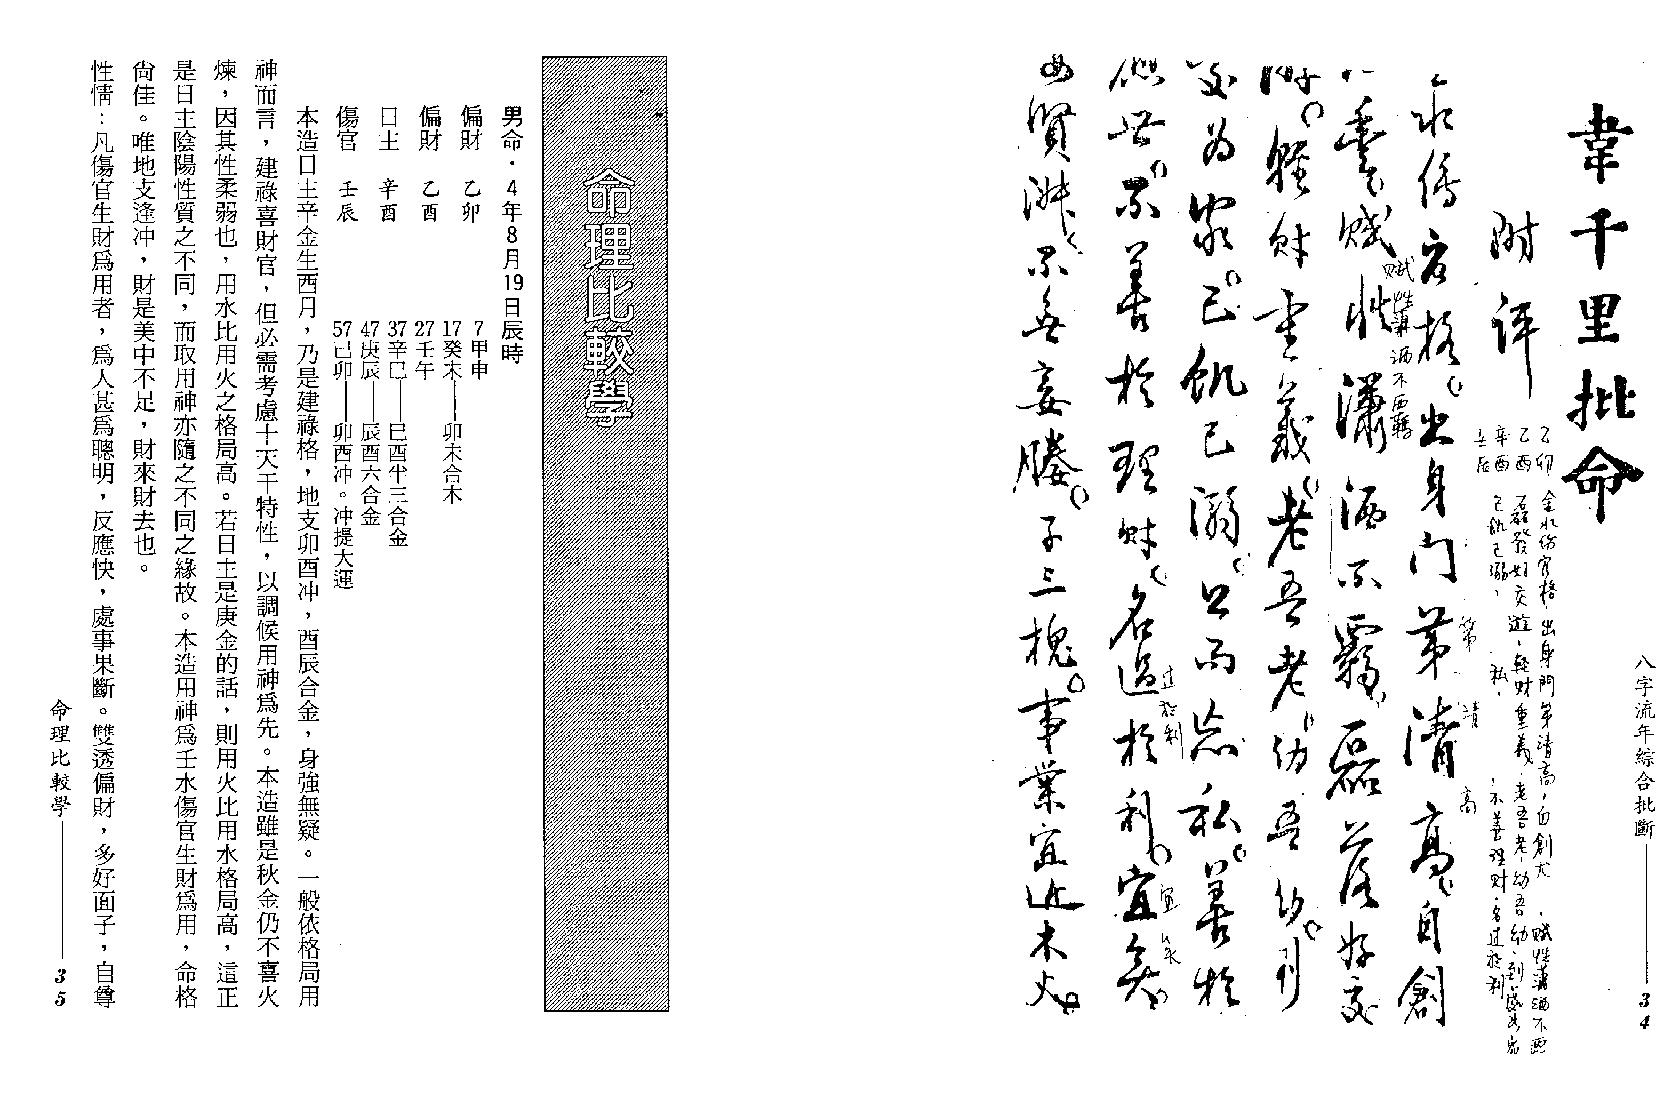 韋千里批命
附評
乙卯
乙酉
辛酉
壬辰
金水傷官格，出身門第清高，自創尤，賦性瀟洒不羈
磊落好交遊，輕財重義，老吾老幼吾幼，
己飢己溺，私，不善理財，名過於利
格。出身門第清高，自創
賦性瀟洒不羈，磊落好交
游。輕財重義，老吾老，幼吾幼。
為家。己飢己溺。公而忘私。善於
世，不善於理財，名過於利，宜
賢淑，不無妾媵。子三槐。事業宜近木火。
賦性瀟洒不羈
第清高
過於利
宜
八字流年綜合批斷
34
命理比較學
男命．4年8月19日辰時
偏財　乙卯
偏財　乙酉
日主　辛酉
傷官　壬辰
7甲申
17癸未——卯未合木
27壬午
37辛巳——巳酉半三合金
47庚辰——辰酉六合金
57己卯——卯酉冲。冲提大運
本造日主辛金生酉月，乃是建祿格，地支卯酉冲，酉辰合金，身強無疑。一般依格局用
神而言，建祿喜財官，但必需考慮十天干特性，以調候用神爲先。本造雖是秋金仍不喜火
煉，因其性柔弱也，用水比用火之格局高。若日主是庚金的話，則用火比用水格局高，這正
是日主陰陽性質之不同，而取用神亦隨之不同之緣故。本造用神爲壬水傷官生財爲用，命格
尙佳。唯地支逢冲，財是美中不足，財來財去也。
性情：凡傷官生財爲用者，爲人甚爲聰明，反應快，處事果斷。雙透偏財，多好面子，自尊
命理比較學
35